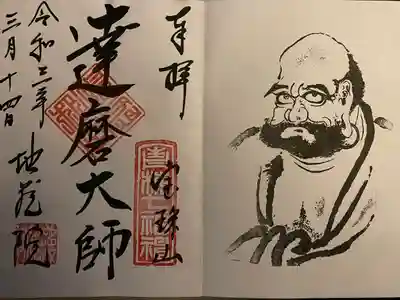 奉拝
宝珠山
達磨大師
令和三年
三月十四日
地蔵院